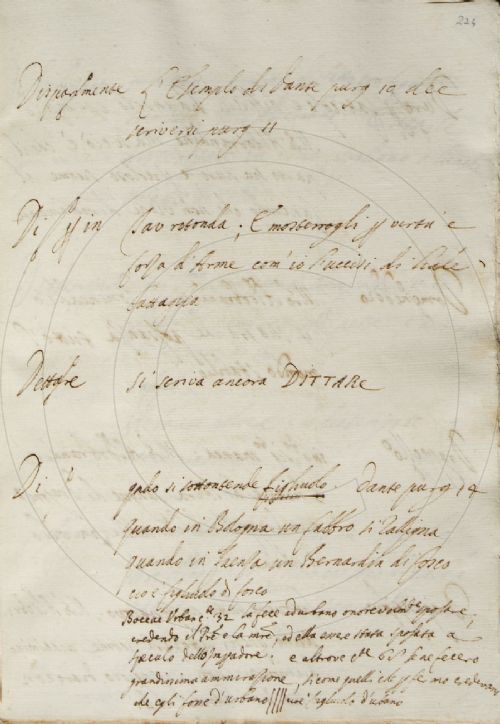 224
L'Esempio di Dante purg 10 dee
scriversi purg 11
Di in Tav ritonda; E mosterrogli p vertù e
forza d'Arme com' io l'uccisi di leale
battaglia
Dettare si scriva ancora DITTARE
Di qndo si sottontende figliuolo Dante purg 14
quando in Bologna un fabbro si ralligna
quando in Faenza un Bernardin di fosco
cio è figliuolo di fosco
Boccac Urban 32 la fece ad urbano onorevolmte sposare,
credendo il Pre e la mre, ed ella avere stata sposata a
secolo dello Imperadore: e altrove se ne fecero
grandissima ammirazione, sicome quelli che credevano
che egli fosse d'urbano cioè figliuolo d'urbano